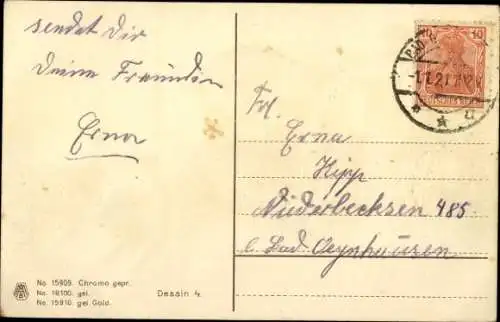 sendet Dir
Deine Freundin
Erna
Frl.
Erna
Hipp
Niederbecksen 485
b. Bad Oeynhausen.
10
-1.1.21.7-12V
* * a
No. 15909. Chromo gepr.
No. 16100. gel.
No. 15910. gel. Gold.
Dessin 4.